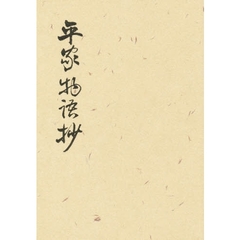 平家物語抄